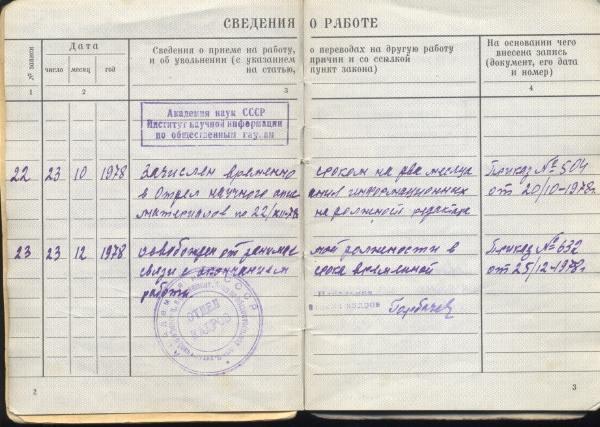 СВЕДЕНИЯ О РАБОТЕ
№ записи
Дата
число месяц год
Сведения о приеме на работу, о переводах на другую работу
и об увольнении (с указанием причин и со ссылкой
на статью, пункт закона)
На основании чего
внесена запись
(документ, его дата
и номер)
1 2 3 4
Академия наук СССР
Институт научной информации
по общественным наукам
22 23 10 1978 Зачислен временно сроком на два месяца Приказ № 504
в Отдел научного информационных от 20/10-1978г.
материалов по 22/XII-78 на должность редактора
23 23 12 1978 освобожден от занимаемой должности в Приказ № 632
связи с окончанием срока временной от 25/12-1978г.
работы.
ОТДЕЛ
КАДРОВ
Горбачев
2
3